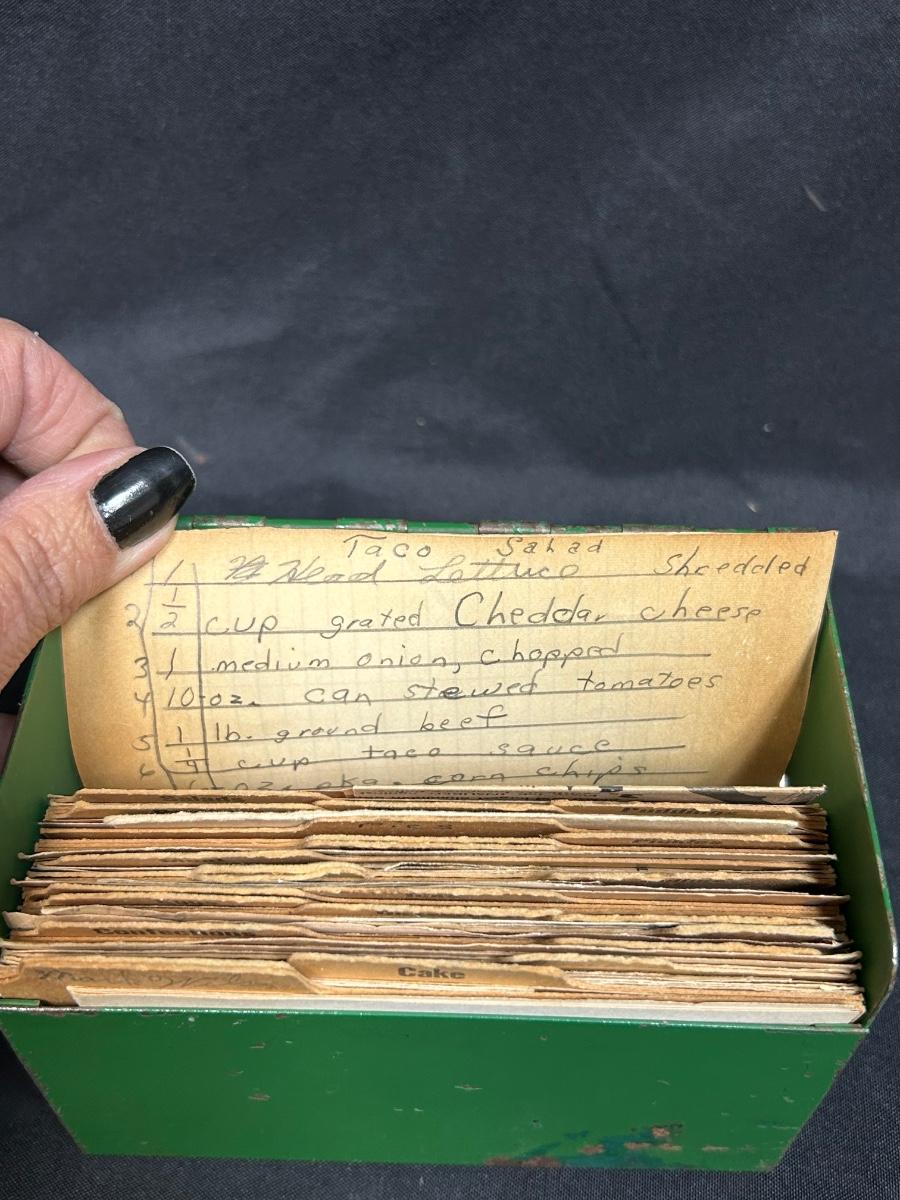 Taco Salad
1 Head Lettuce Shredded
2 1/2 cup grated Cheddar cheese
3 1 medium onion, chopped
4 10-oz. can stewed tomatoes
5 1 lb. ground beef
6 1/4 cup taco sauce
oz. pkg. corn chips
Salads
Confections
Cake